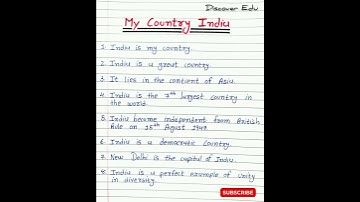 Discover Edu
My Country India
1. India is my country.
2. India is a great country.
3. It lies in the continent of Asia.
4. India is the 7th largest country in
the world.
5. India became independent form British
Rule on 15th August 1947.
6. India is a democratic country.
7. New Delhi is the capital of India.
8. India is a perfect example of unity
in diversity.
SUBSCRIBE